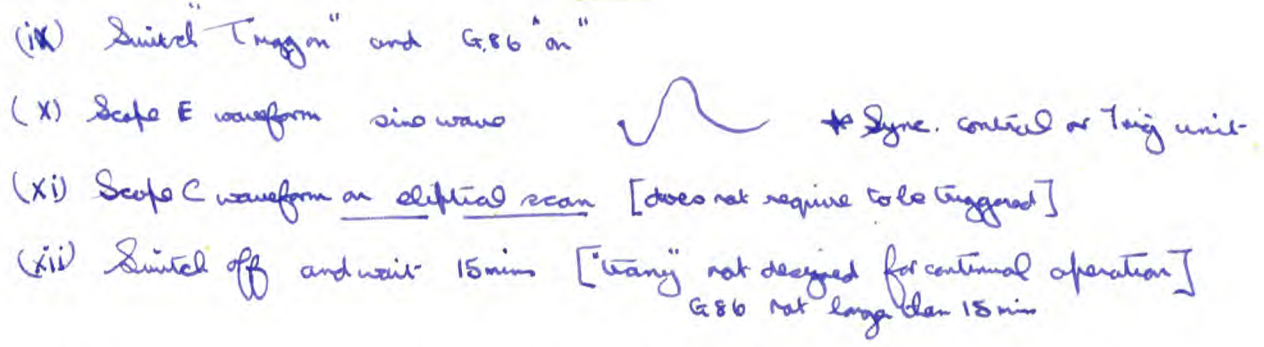 (ix) Switch "Trigg on" and G.86 "on"
(x) Scope E waveform sine wave * Sync. control or Trig unit
(xi) Scope C waveform an eliptical scan [does not require to be triggered]
(xii) Switch off and wait 15 mins ["trany" not designed for continual operation]
G86 not longer than 15 min